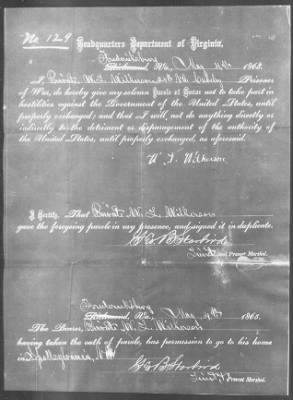 No 129
Headquarters Department of Virginia,
Fredericksburg
Richmond, Va., May 4th 1865.
I, Private W. T. Wilkerson Prisoner
of War, do hereby give my solemn Parole of Honor not to take part in
hostilities against the Government of the United States, until
properly exchanged; and that I will not do anything directly or
indirectly to the detriment or disparagement of the authority of
the United States, until properly exchanged, as aforesaid.
W. T. Wilkerson
I Certify, That Private W. T. Wilkerson
gave the foregoing parole in my presence, and signed it in duplicate.
Lieut and Provost Marshal.
Fredericksburg
Richmond, Va., May 4th 1865.
The Bearer, Private W. T. Wilkerson
having taken the oath of parole, has permission to go to his home
in Spottsylvania,
Lieut & Provost Marshal.